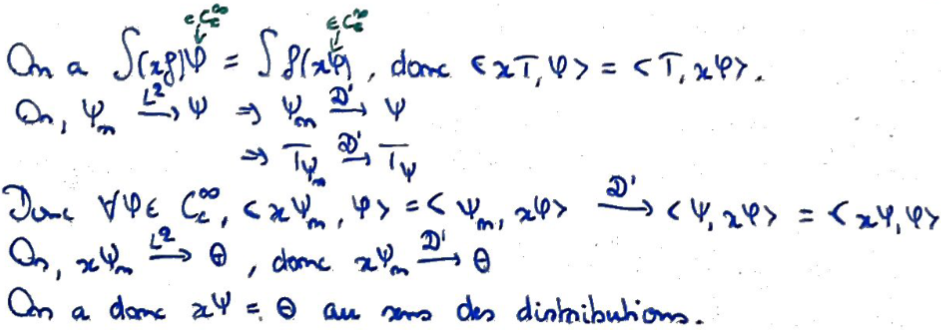 ∈C_c^∞ ∈C_c^∞
On a ∫(xf)φ = ∫f(xφ), donc <xT,φ> = <T,xφ>.
Or, Ψ_n —L²→ Ψ ⇒ Ψ_n —D'→ Ψ
⇒ T_{Ψ_n} —D'→ T_Ψ
Donc ∀φ∈ C_c^∞, <xΨ_n, φ> = <Ψ_n, xφ> —D'→ <Ψ, xφ> = <xΨ, φ>
Or, xΨ_n —L²→ θ, donc xΨ_n —D'→ θ
On a donc xΨ = θ au sens des distributions.